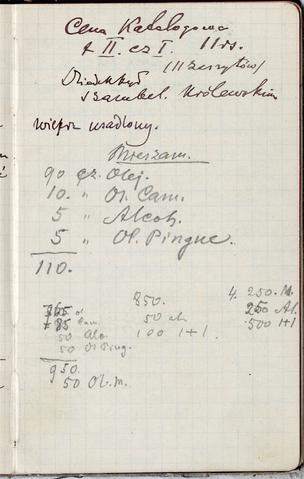 Cena Katalogowa
t II. cz I. 11 rs.
III zeszytów/
szambel. Królewskim
wieprz usadlony.
Mieszam.
90 cz. Olej.
10. " Ol. Cam.
5 " Alcoh.
5 " Ol. Pingue.
110.
765 ol
+ 85 Cam.
50 Alo
50 Ol Ping.
950.
50 Ol. m.
850.
50 al.
100 1+1
4. 250. M.
250 Al.
500 1+1